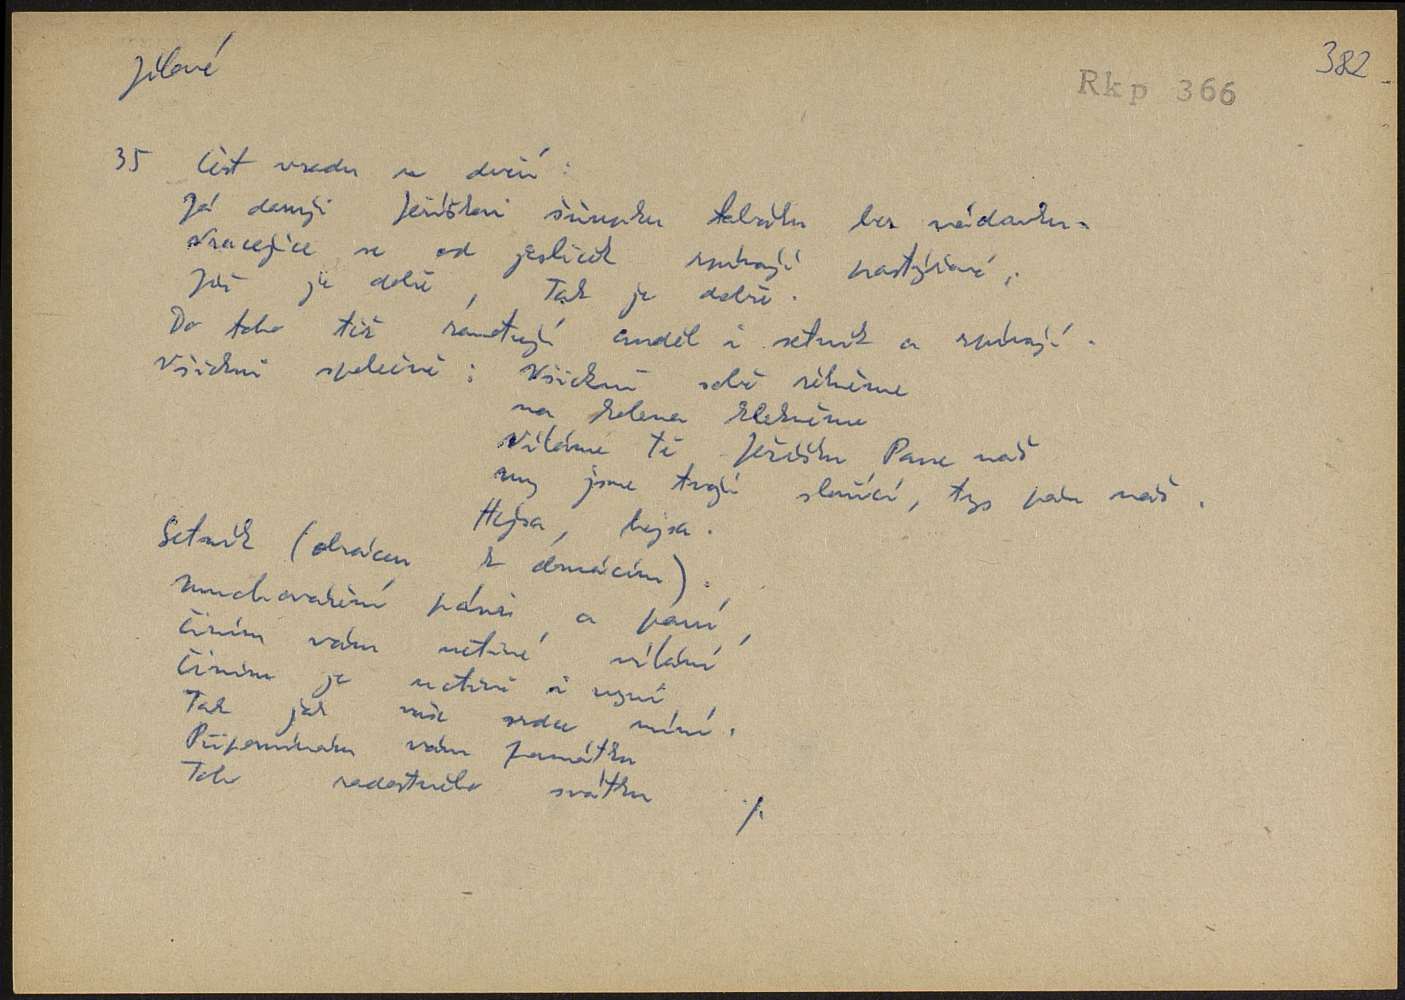 Jílové
382
Rkp 366
35 Čert vzadu u dveří:
Já daruji Ježíškovi šňupku tabáku bez
Vracejíce se od jesliček zpívají pastýřové:
Již je dobře, Tak je dobře.
Do toho též anděl i setník a zpívají.
Všickni společně: Všickni sobě
na kolena klekněme
Vítáme tě Ježíšku Pane náš
my jsme tvoji sloužící, tys pán náš.
Hejsa, hejsa.
Setník (obrácen k domácím):
Mnohovážení páni a paní,
činím vám uctivé vítání
Činím je uctivě i nyní
Tak jak vaše srdce míní.
Připomínám vám památku
Toho radostného svátku ./.